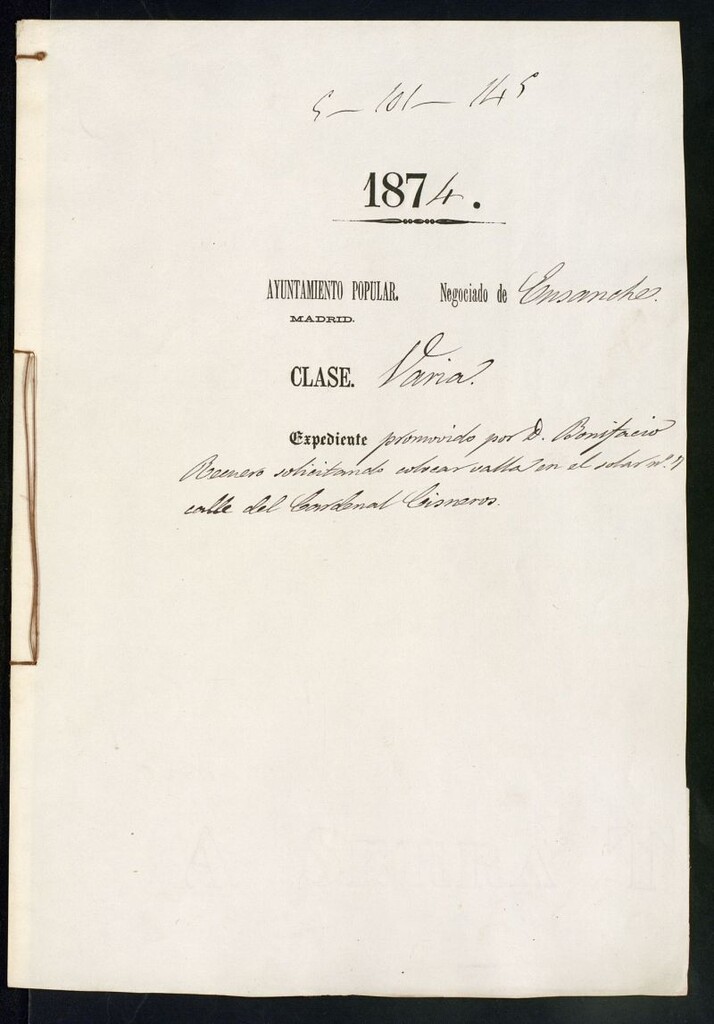 5 — 101 — 145
1874.
AYUNTAMIENTO POPULAR. Negociado de Ensanche.
MADRID.
CLASE. Varia.
Expediente promovido por D. Bonifacio
Recuero solicitando colocar valla en el solar nº. 7
calle del Cardenal Cisneros.